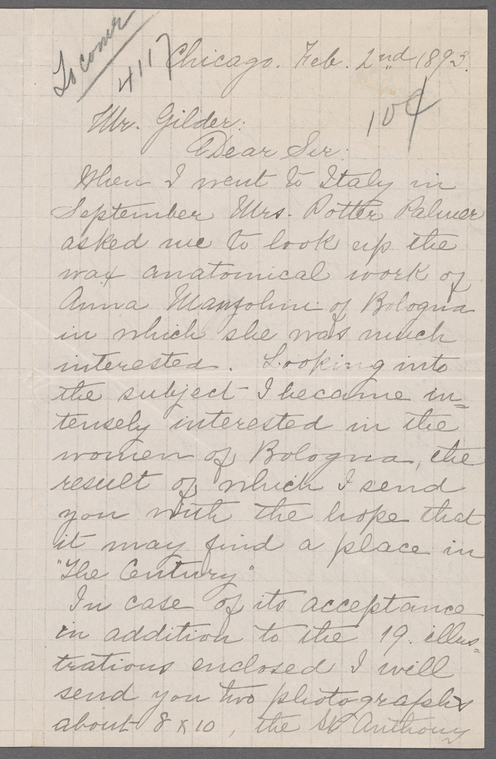 To come
4117
Chicago. Feb. 2nd 1893.
10¢
Mr. Gilder:
Dear Sir:
When I went to Italy in
September Mrs. Potter Palmer
asked me to look up the
wax anatomical work of
Anna Manzolini of Bologna
in which she was much
interested. Looking into
the subject I became in=
tensely interested in the
women of Bologna, the
result of which I send
you with the hope that
it may find a place in
"The Century"
In case of its acceptance
in addition to the 19. illus=
trations enclosed I will
send you two photographs
about 8 x 10, the St Anthony